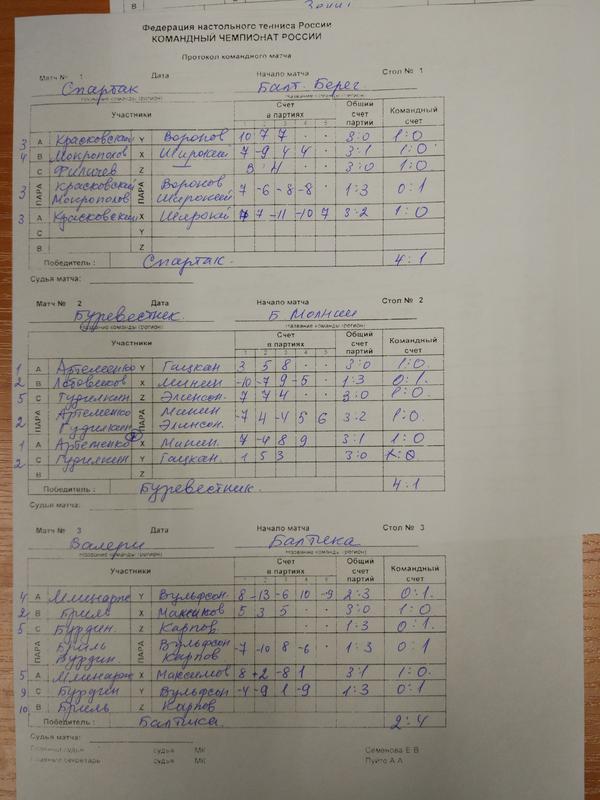 Федерация настольного тенниса России
КОМАНДНЫЙ ЧЕМПИОНАТ РОССИИ
Протокол командного матча
Матч № 1 Дата Начало матча Стол № 1
Спартак Балт. Берег
Название команды (регион) Название команды (регион)
Участники Счет в партиях Общий счет партий Командный счет
1 2 3 4 5
3 A Красковский Y Воронов 10 7 7 · · 3:0 1:0
4 B Мокрополов X Широкий 7 -9 4 4 · 3:1 1:0
C Z 3 4 · · 3:0 1:0
3 ПАРА Красковский Мокрополов ПАРА Воронов Широкий 7 -6 -8 -8 · 1:3 0:1
3 A Красковский X Широкий 7 -11 -10 7 3:2 1:0
C Y
B Z
Победитель : Спартак. 4:1
Судья матча:
Матч № 2 Дата Начало матча Стол № 2
Буревестник. Б Молнии
Название команды (регион) Название команды (регион)
Участники Счет в партиях Общий счет партий Командный счет
1 2 3 4 5
1 A Артеменко Y Гацкан 3 5 8 · · 3:0 1:0
2 B X Минин -10 -7 9 -5 · 1:3 0:1.
5 C Гудилкин Z Элинсон. 7 7 4 · · 3:0 1:0.
2 ПАРА Артеменко Гудилкин ПАРА Минин Элинсон. -7 4 -4 5 6 3:2 1:0
1 A Артеменко X Минин. 7 -4 8 9 3:1 1:0
2 C Гудилкин Y Гацкан. 1 5 3 3:0
B Z
Победитель : Буревестник. 4:1
Судья матча:
Матч № 3 Дата Начало матча Стол № 3
Валери Балтика
Название команды (регион) Название команды (регион)
Участники Счет в партиях Общий счет партий Командный счет
1 2 3 4 5
4 A Млинарж Y Вульфсон. 8 -13 -6 10 -9 2:3 0:1.
2 B Бриль X Максимов 5 3 5 3:0 1:0
5 C Бурдин. Z Карпов · · · 1:3 0:1.
ПАРА Бриль Бурдин. ПАРА Вульфсон Карпов -7 -10 8 -6 · 1:3 0:1
5 A Млинарж X Максимов 8 +2 -8 1 3:1 1:0.
9 C Бурдин Y Вульфсон -4 -9 1 -9 1:3 0:1
10 B Бриль Z Карпов
Победитель : Балтика. 2:4
Судья матча:
Главный судья судья МК Семенова Е.В.
Главный секретарь судья МК Пуйто А.А.